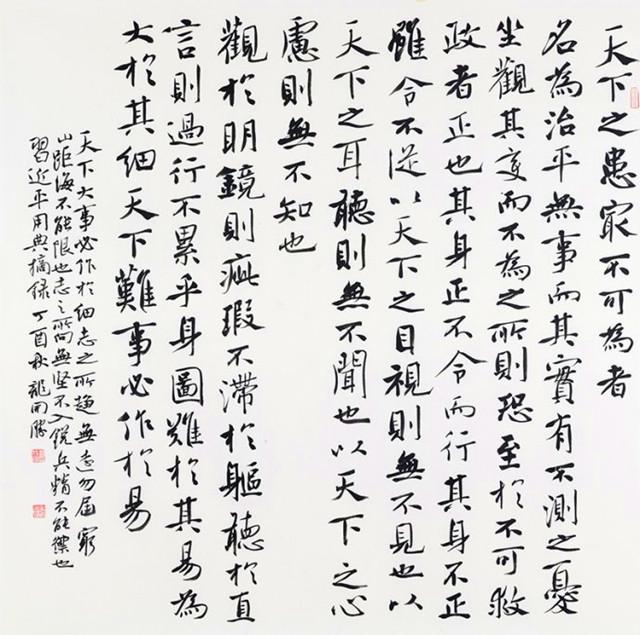 天下之患冣不可為者
名為治平無事而其實有不測之憂
坐觀其变而不為之所則恐至於不可救
政者正也其身正不令而行其身不正
雖令不從以天下之目視則無不見也以
天下之耳聽則無不聞也以天下之心
慮則無不知也
觀於明鏡則疵瑕不滯於軀聽於直
言則過行不累乎身圖難於其易為
大於其細天下難事必作於易
天下大事必作於細志之所趨無遠勿屆窮
山距海不能限也志之所向無坚不入鋭兵精不能禦也
習近平用典摘録丁酉秋龍開勝